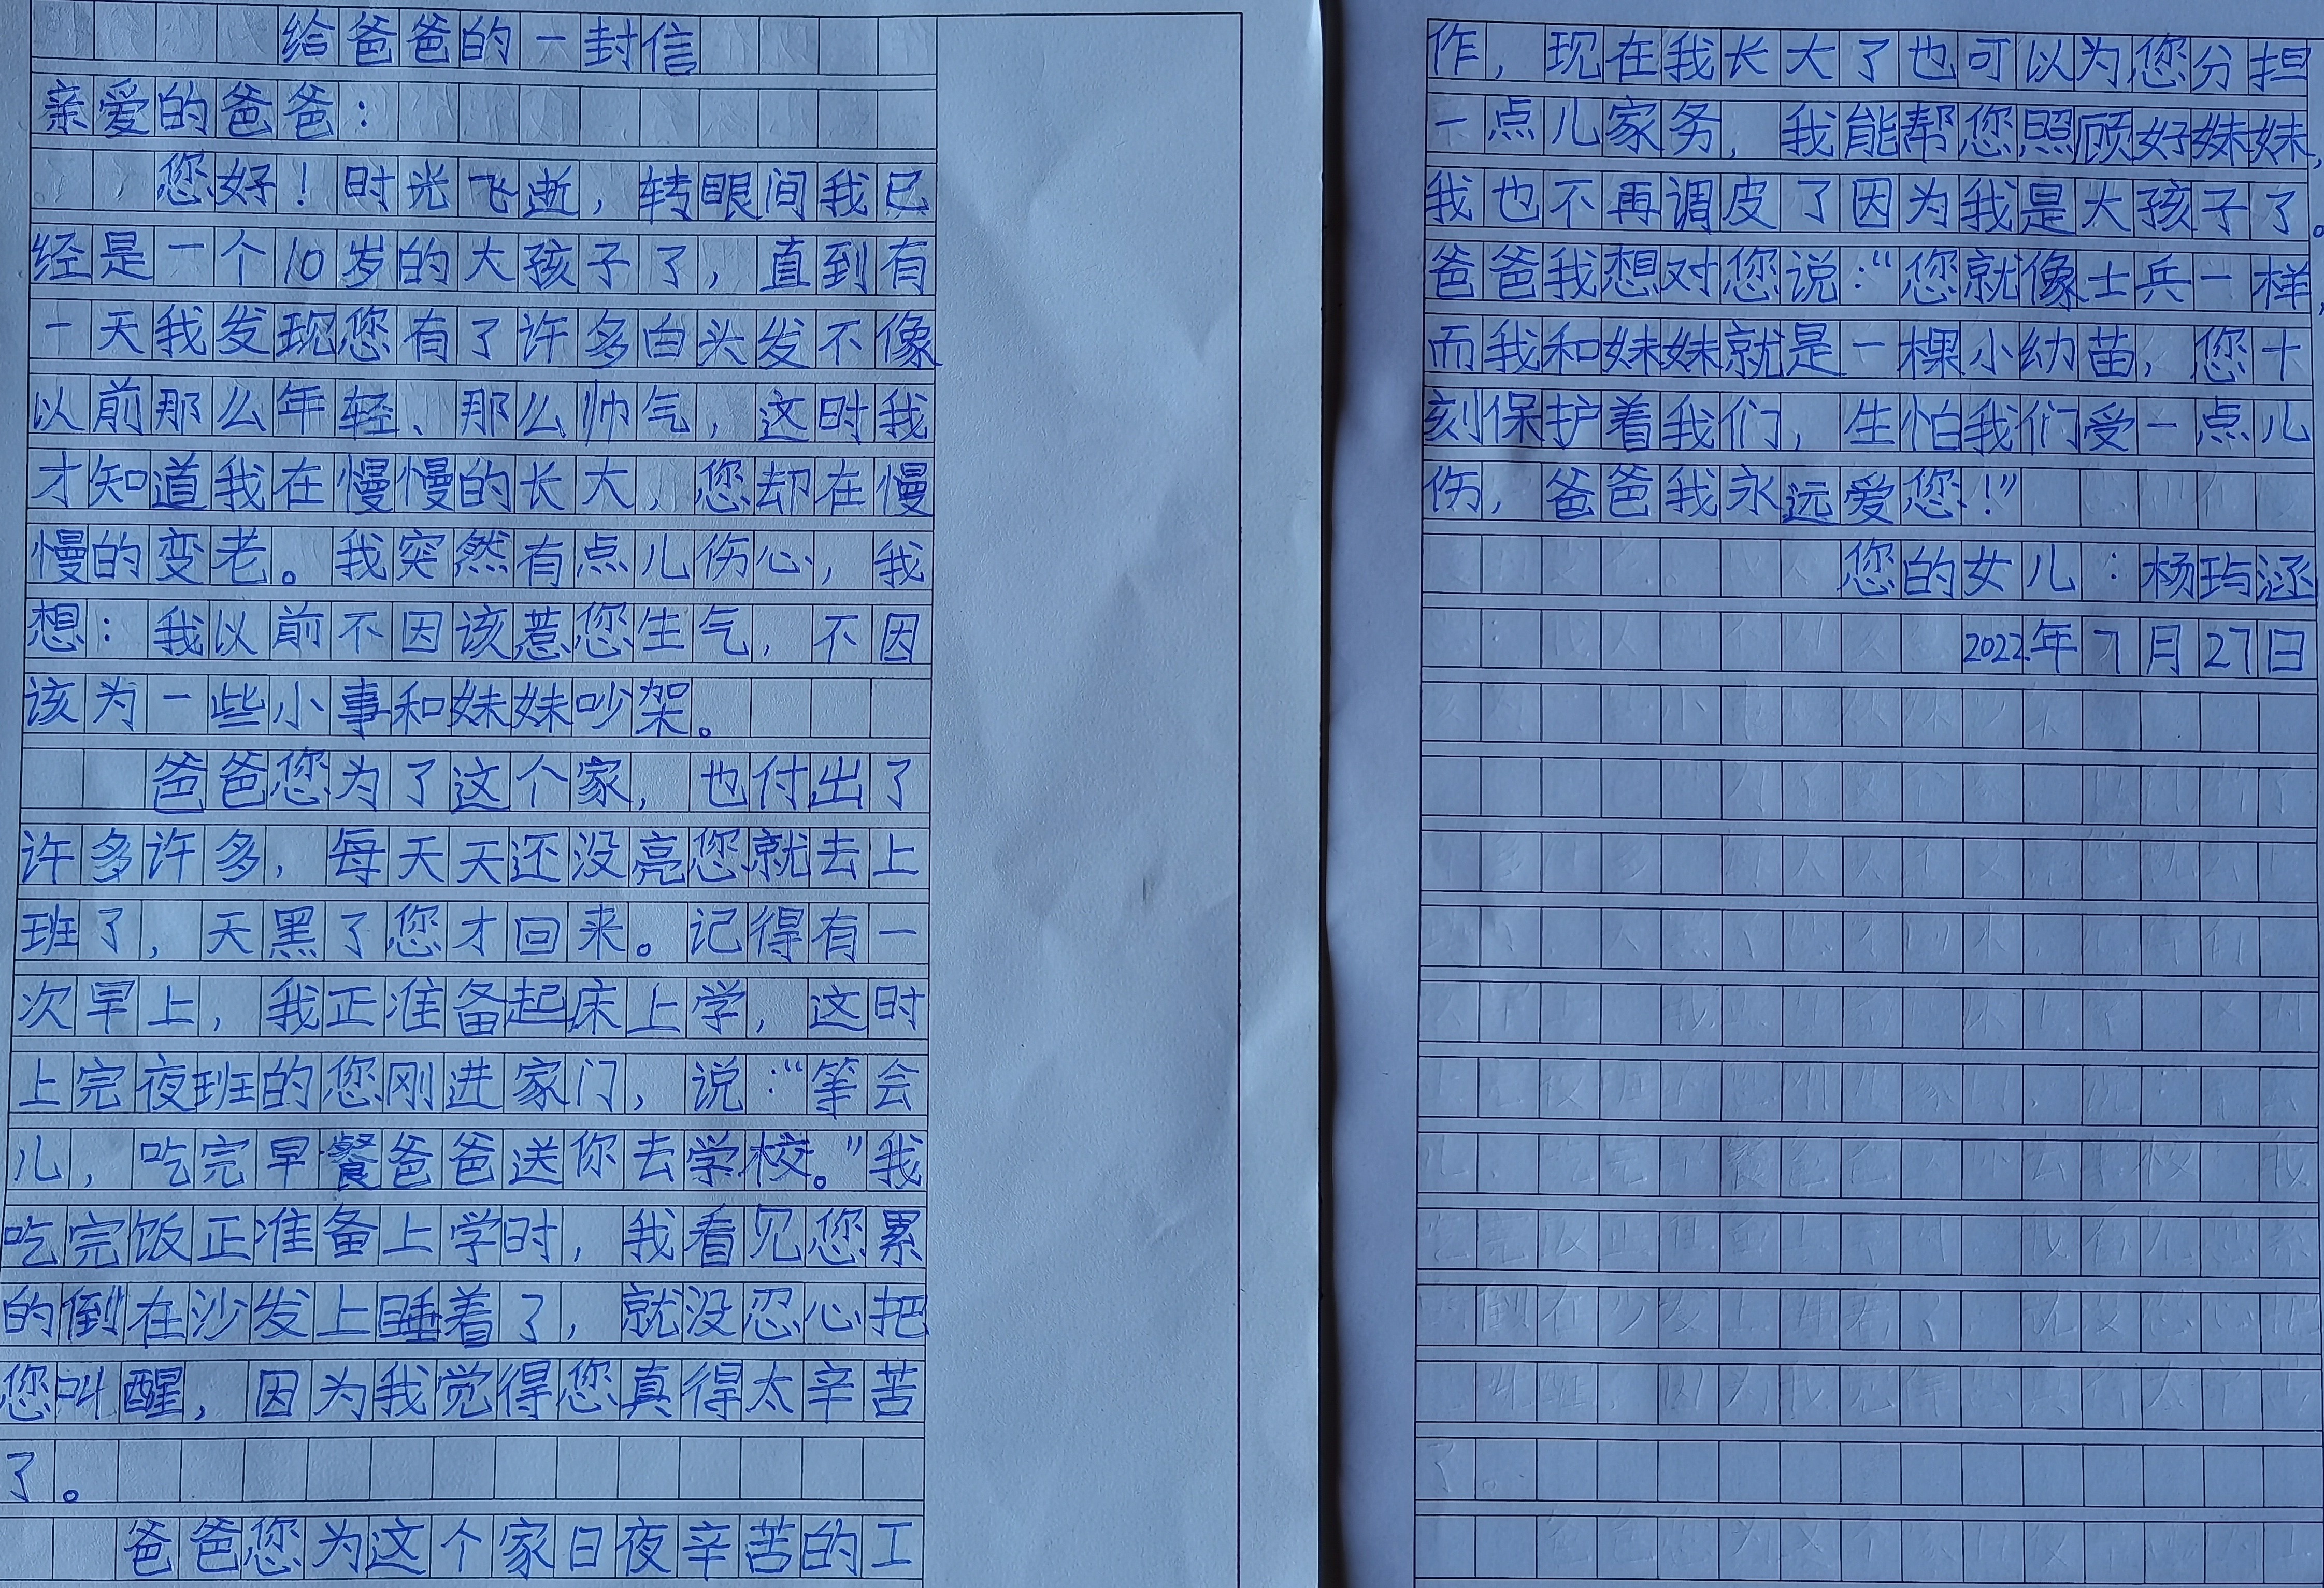 给爸爸的一封信
亲爱的爸爸：
您好！时光飞逝，转眼间我已
经是一个10岁的大孩子了，直到有
一天我发现您有了许多白头发不像
以前那么年轻、那么帅气，这时我
才知道我在慢慢的长大，您却在慢
慢的变老。我突然有点儿伤心，我
想：我以前不因该惹您生气，不因
该为一些小事和妹妹吵架。
爸爸您为了这个家，也付出了
许多许多，每天天还没亮您就去上
班了，天黑了您才回来。记得有一
次早上，我正准备起床上学，这时
上完夜班的您刚进家门，说：“等会
儿，吃完早餐爸爸送你去学校。”我
吃完饭正准备上学时，我看见您累
的倒在沙发上睡着了，就没忍心把
您叫醒，因为我觉得您真得太辛苦
了。
爸爸您为这个家日夜辛苦的工
作，现在我长大了也可以为您分担
一点儿家务，我能帮您照顾好妹妹，
我也不再调皮了因为我是大孩子了。
爸爸我想对您说：“您就像士兵一样，
而我和妹妹就是一棵小幼苗，您十
刻保护着我们，生怕我们受一点儿
伤，爸爸我永远爱您！”
您的女儿：杨玙涵
2022年7月27日